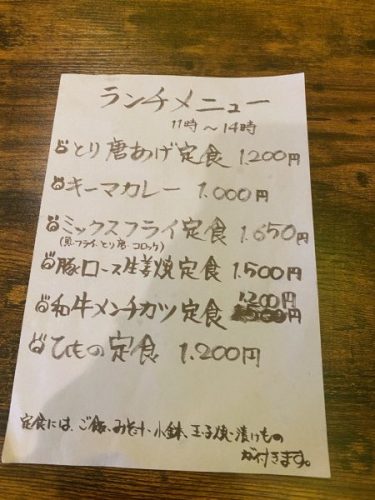 ランチメニュー
11時〜14時
とり唐あげ定食 1.200円
キーマカレー 1.000円
ミックスフライ定食 1.650円
(貝フライ・とり唐・コロッケ)
豚ロース生姜焼定食 1.500円
和牛メンチカツ定食 1.200円
ひもの定食 1.200円
定食には、ご飯、みそ汁、小鉢、玉子焼・漬けもの
が付きます。